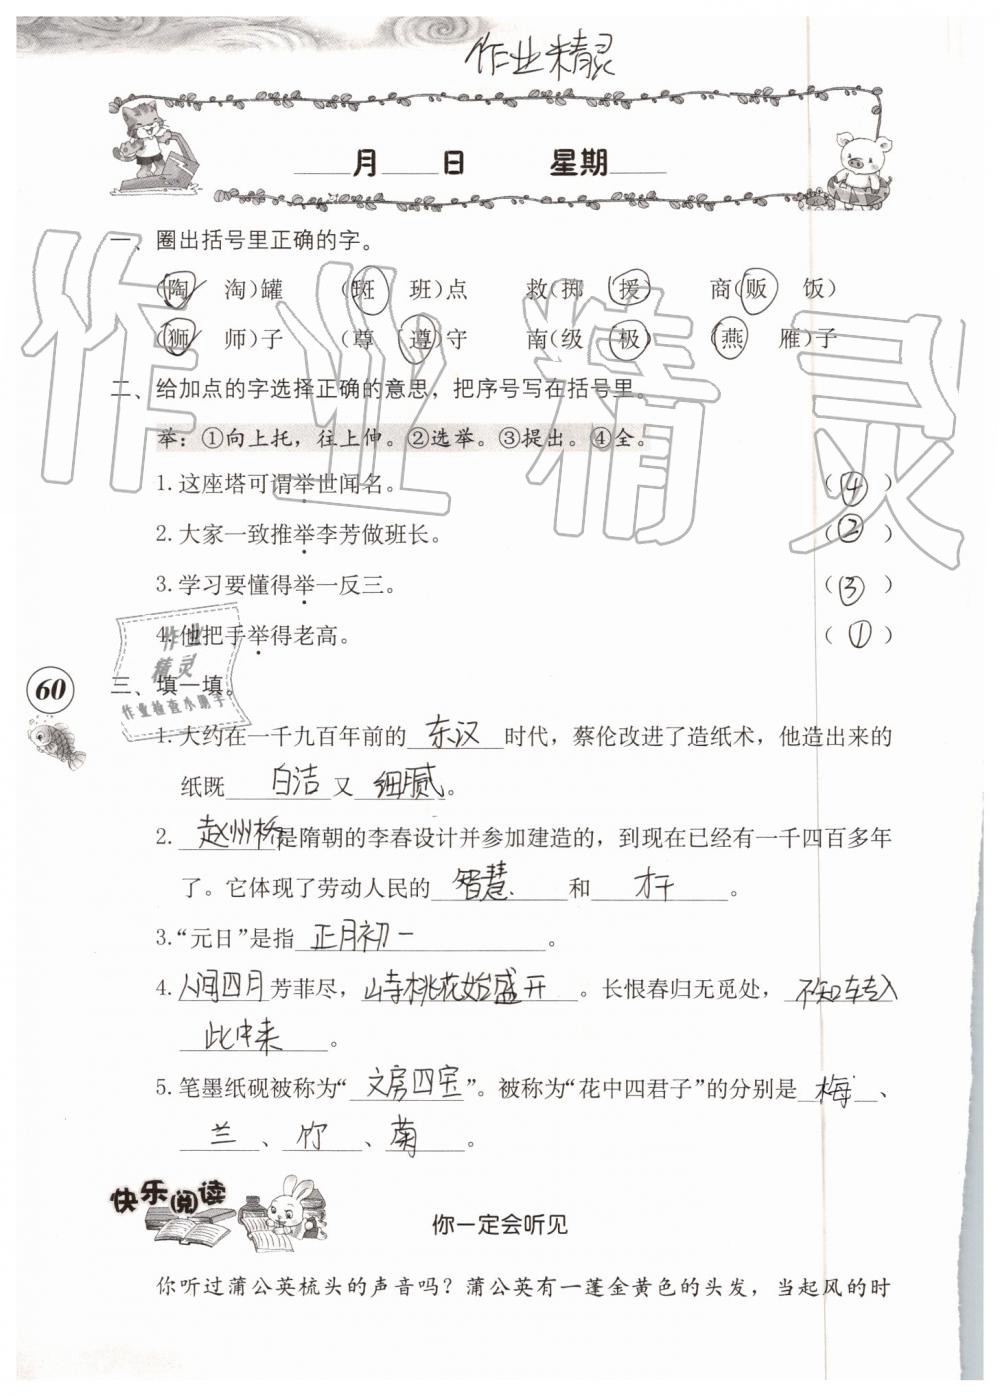 作业精灵
月 日 星期
一、圈出括号里正确的字。
(陶 淘)罐 (斑 班)点 救(掷 援) 商(贩 饭)
(狮 师)子 (尊 遵)守 南(级 极) (燕 雁)子
二、给加点的字选择正确的意思，把序号写在括号里。
举：①向上托，往上伸。②选举。③提出。④全。
1.这座塔可谓举世闻名。 (④)
2.大家一致推举李芳做班长。 (②)
3.学习要懂得举一反三。 (③)
4.他把手举得老高。 (①)
作业
精灵
作业检查小助手
60
三、填一填。
1.大约在一千九百年前的东汉时代，蔡伦改进了造纸术，他造出来的
纸既白洁又细腻。
2.赵州桥是隋朝的李春设计并参加建造的，到现在已经有一千四百多年
了。它体现了劳动人民的智慧和才干。
3.“元日”是指正月初一。
4.人间四月芳菲尽，山寺桃花始盛开。长恨春归无觅处，不知转入
此中来。
5.笔墨纸砚被称为“文房四宝”。被称为“花中四君子”的分别是梅、
兰、竹、菊。
快乐阅读
你一定会听见
你听过蒲公英梳头的声音吗？蒲公英有一蓬金黄色的头发，当起风的时
作业精灵